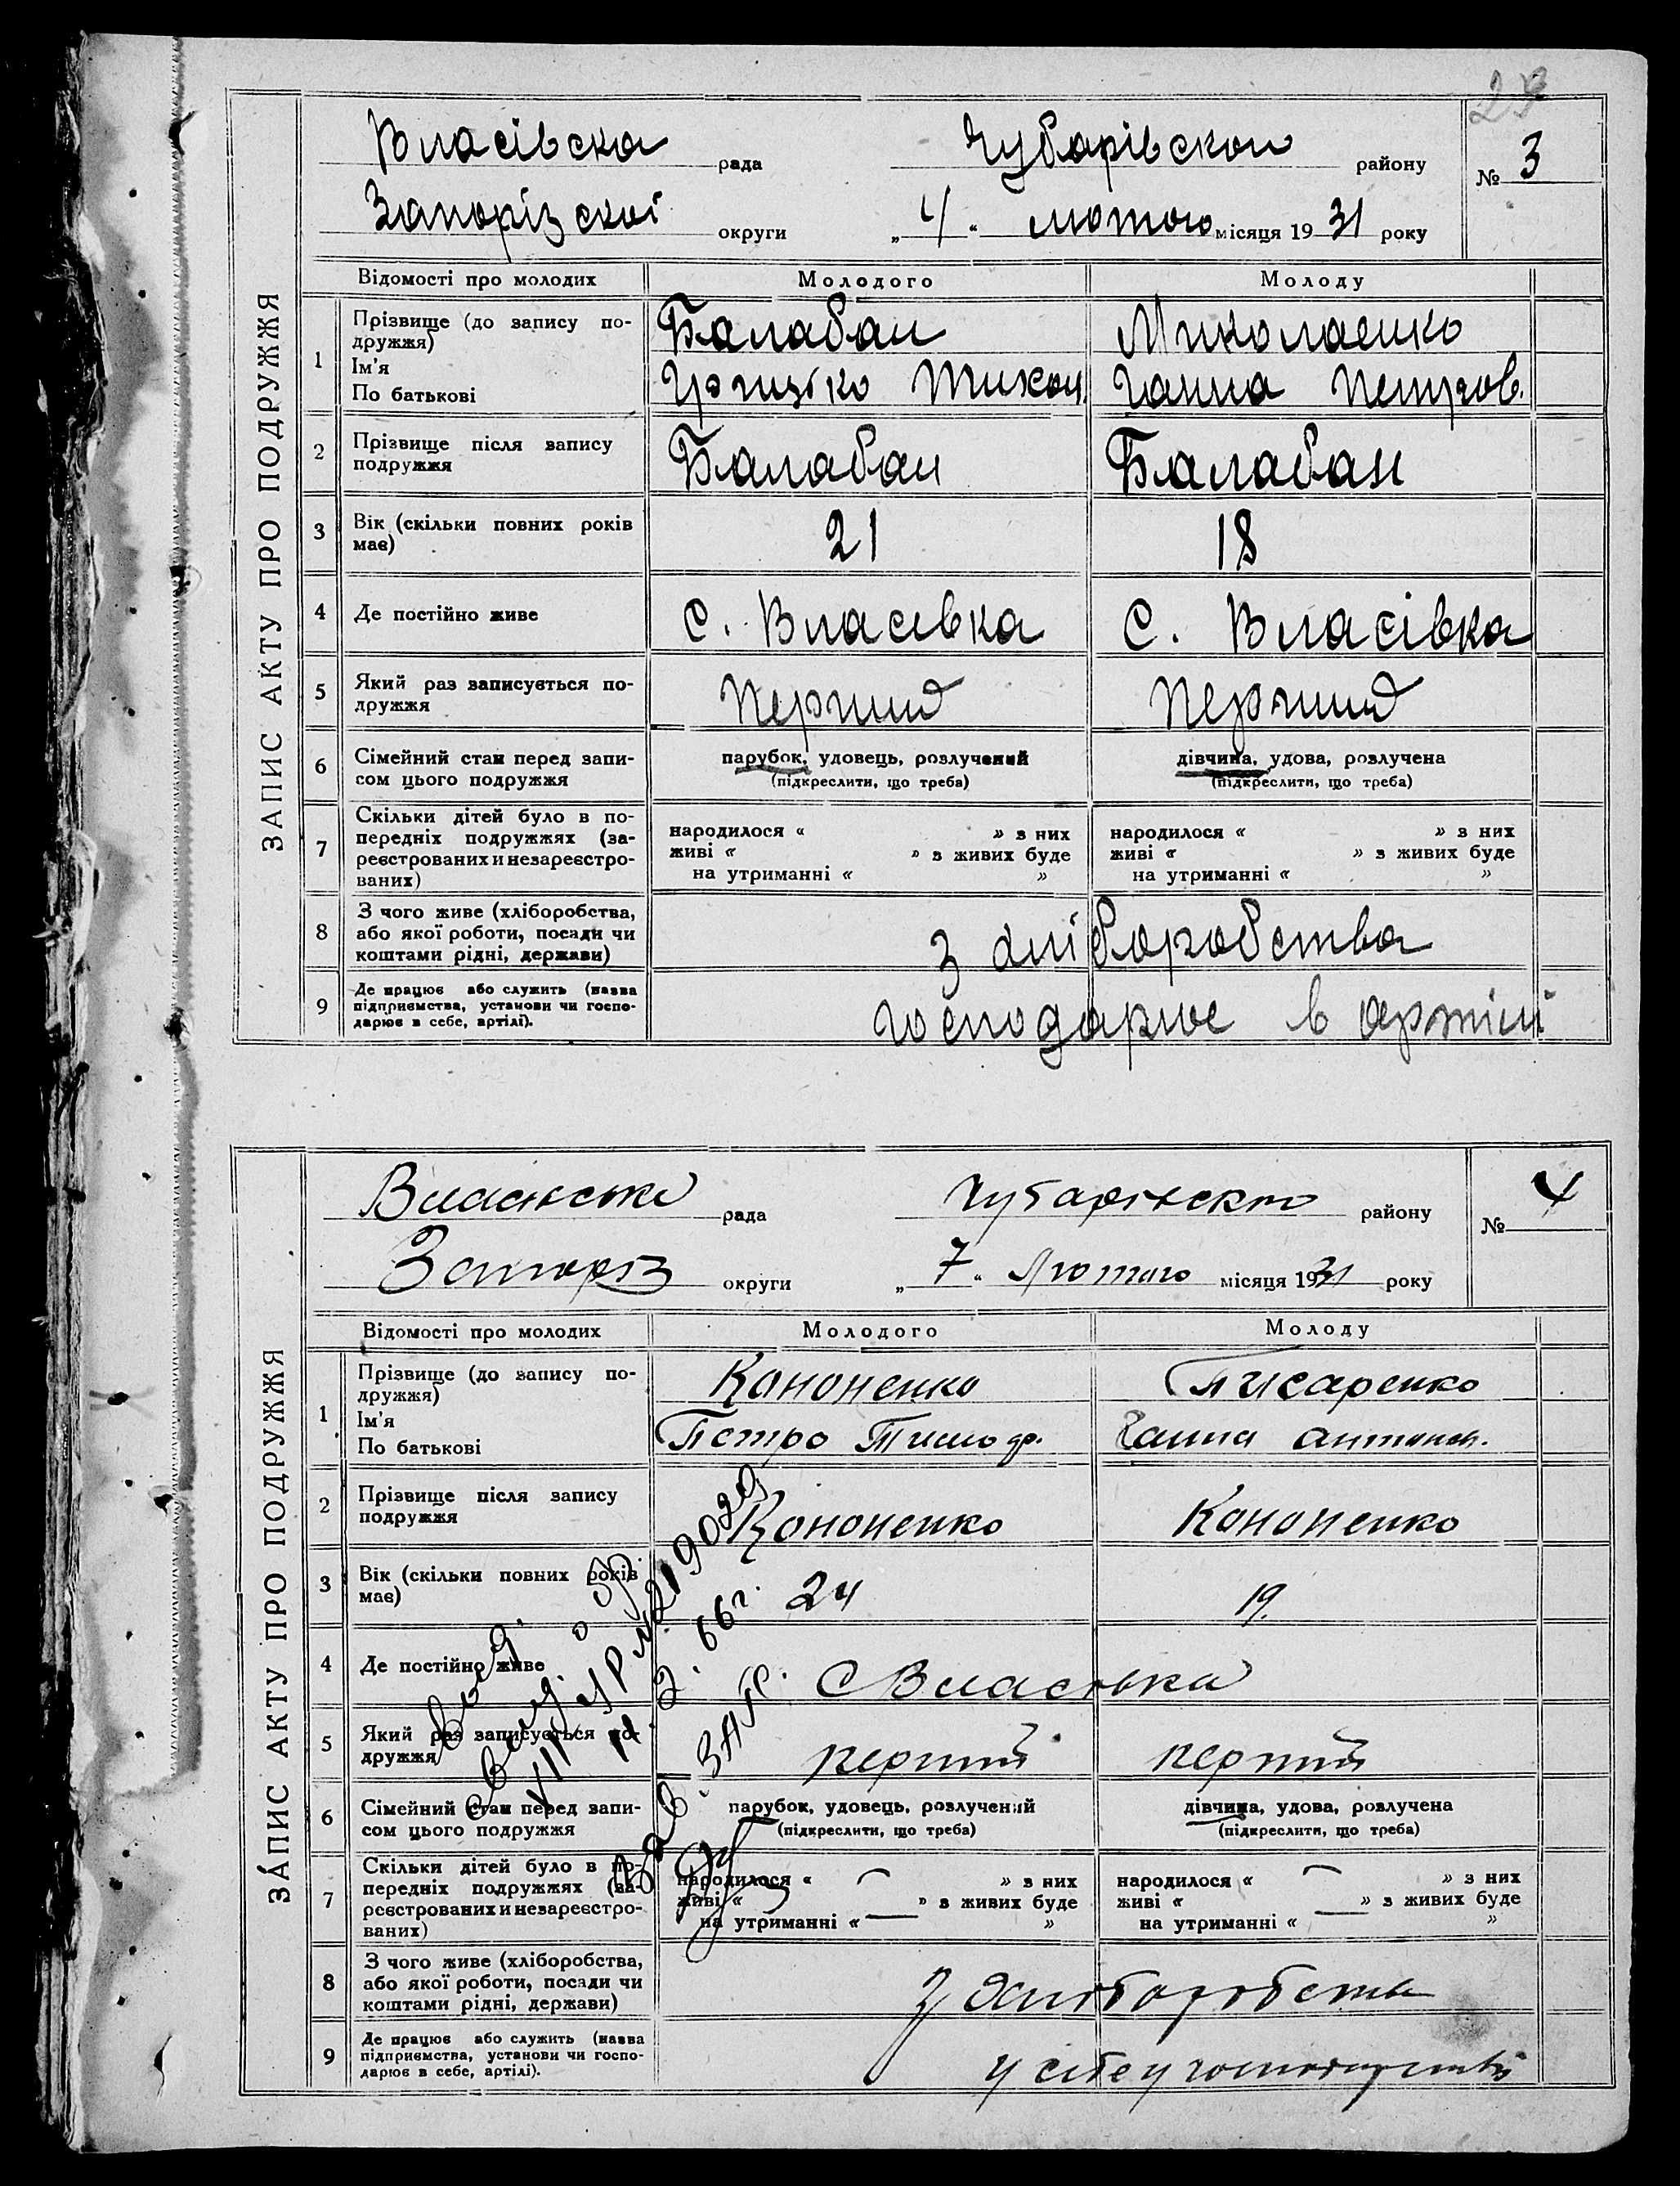 23
Власівска рада Чубарівскои району № 3
Запорізскої округи „4“ лютого місяця 1931 року
ЗАПИС АКТУ ПРО ПОДРУЖЖЯ
Відомості про молодих Молодого Молоду
1 Прізвище (до запису по-
дружжя) Балабан Миколаенко
Ім'я
По батькові Грицько Тихон. Ганна Петров.
2 Прізвище після запису
подружжя Балабан Балабан
3 Вік (скільки повних років
має) 21 18
4 Де постійно живе с. Власівка с. Власівка
5 Який раз записується по-
дружжя Перший Перший
6 Сімейний стан перед запи-
сом цього подружжя
парубок, удовець, розлучений дівчина, удова, розлучена
(підкреслити, що треба) (підкреслити, що треба)
7 Скільки дітей було в по-
передніх подружжях (за-
реєстрованих и незареєстро-
ваних)
народилося « » з них народилося « » з них
живі « » з живих буде живі « » з живих буде
на утриманні « » на утриманні « »
8 З чого живе (хліборобства,
або якої роботи, посади чи
коштами рідні, держави)
З хліборобства
9 Де працює або служить (назва
підприємства, установи чи госпо-
дарює в себе, артілі).
господарює в артілі
Власівська рада Чубарівского району № 4
Запоріз округи „7“ Лютого місяця 1931 року
ЗАПИС АКТУ ПРО ПОДРУЖЖЯ
Відомості про молодих Молодого Молоду
1 Прізвище (до запису по-
дружжя) Кононенко Писаренко
Ім'я
По батькові Петро Тимоф. Ганна Антонов.
2 Прізвище після запису
подружжя Кононенко Кононенко
3 Вік (скільки повних років
має) 24 19.
4 Де постійно живе С Власівка
5 Який раз записується по-
дружжя перший перший
6 Сімейний стан перед запи-
сом цього подружжя
парубок, удовець, розлучений дівчина, удова, розлучена
(підкреслити, що треба) (підкреслити, що треба)
7 Скільки дітей було в по-
передніх подружжях (за-
реєстрованих и незареєстро-
ваних)
народилося « » з них народилося « » з них
живі « » з живих буде живі « » з живих буде
на утриманні « » на утриманні « »
8 З чого живе (хліборобства,
або якої роботи, посади чи
коштами рідні, держави)
З хліборобства
9 Де працює або служить (назва
підприємства, установи чи госпо-
дарює в себе, артілі).
у себе у господарстві